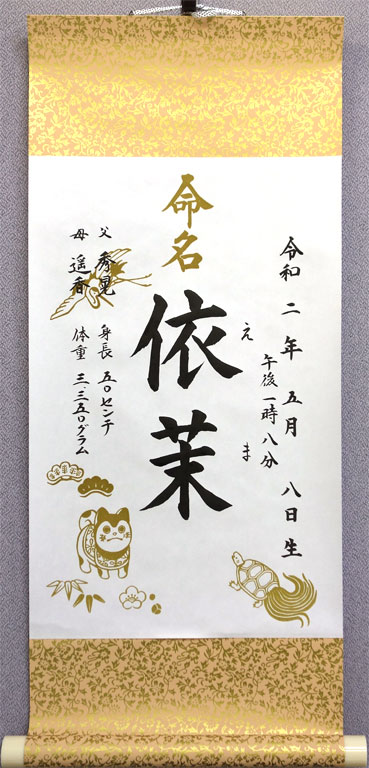 令和二年五月八日生
午後一時八分
命名
えま
依茉
父 秀晃
母 遥香
身長 五〇センチ
体重 三、三五〇グラム